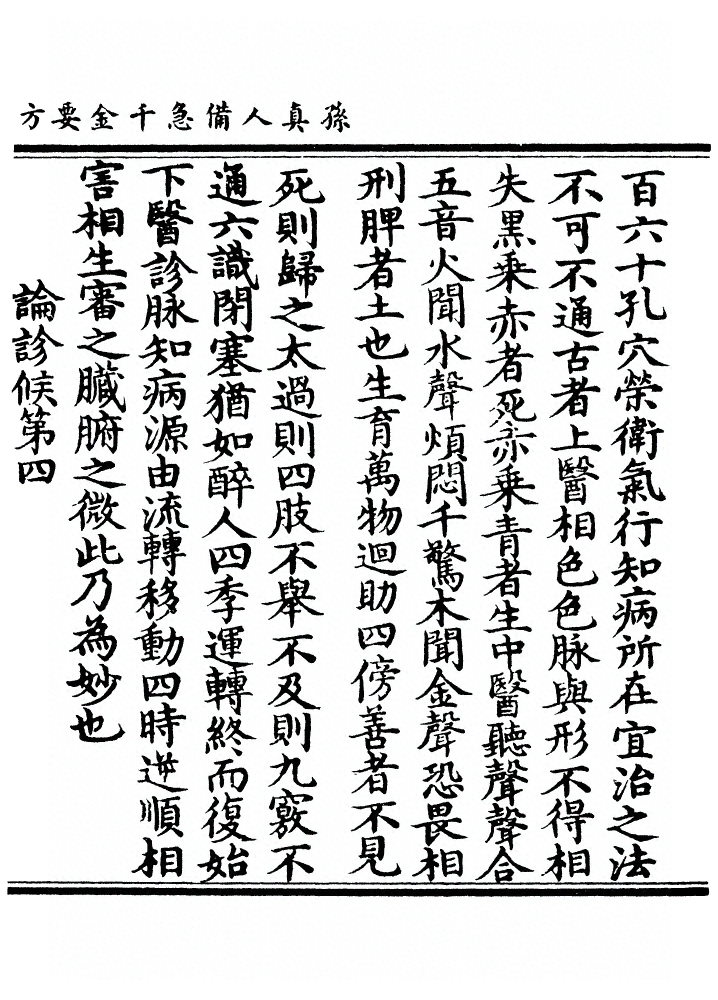 孫真人備急千金要方
百六十孔穴榮衛氣行知病所在宜治之法
不可不通古者上醫相色色脉與形不得相
失黑乘赤者死赤乘青者生中醫聽聲聲合
五音火聞水聲煩悶千驚木聞金聲恐畏相
刑脾者土也生育萬物迴助四傍善者不見
死則歸之太過則四肢不舉不及則九竅不
通六識閉塞猶如醉人四季運轉終而復始
下醫診脉知病源由流轉移動四時逆順相
害相生審之臟腑之微此乃為妙也
論診候第四